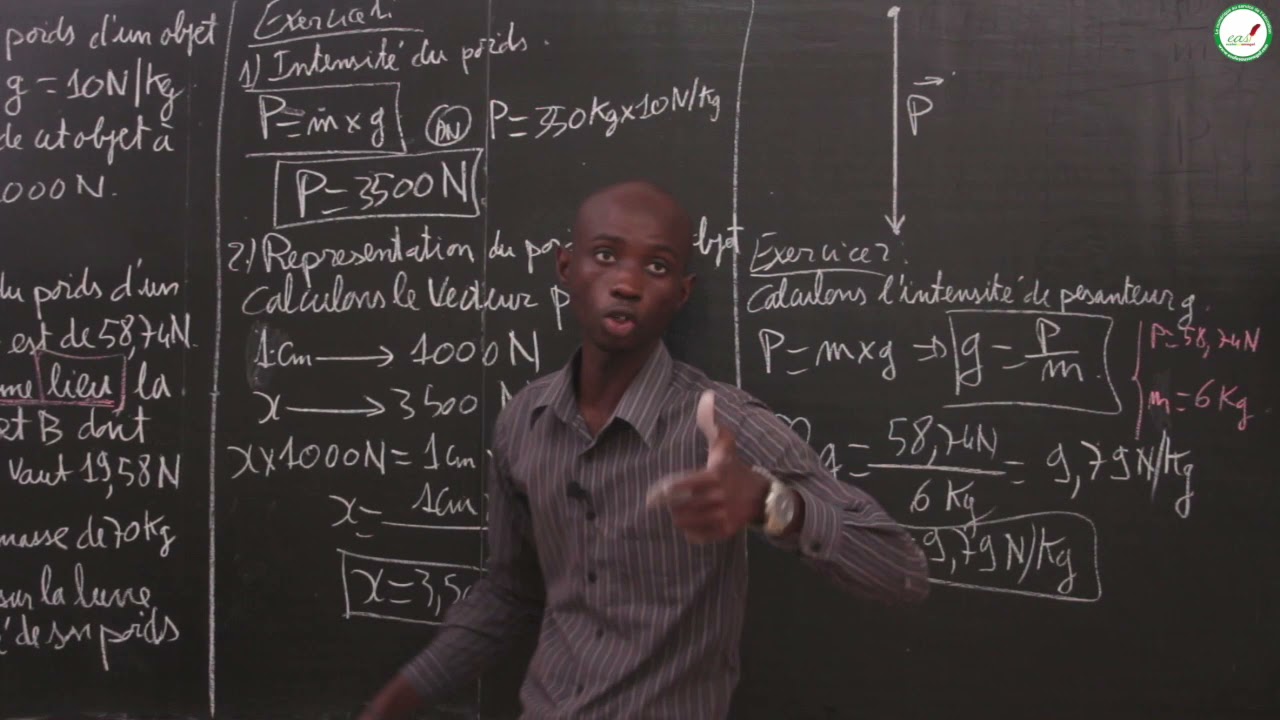 poids d'un objet
g = 10N/kg
de cet objet à
000 N.
du poids d'un
est de 58,74N
me lieu la
et B dont
vaut 19,58N
masse de 70kg
sur la lune
de son poids
Exercice1:
1) Intensité du poids.
P=m×g AN P=350Kg×10N/kg
P=3500N
2.) Representation du objet
Calculons le Vecteur P
1cm → 1000N
x → 3500 N
x×1000N=1cm
x= 1cm
x=3,5c
P
Exercice2:
Calculons l'intensité de pesanteur g.
P=m×g ⇒ g = P/m
P=58,74N
m=6Kg
g = 58,74N / 6Kg = 9,79N/kg
9,79N/kg
eas!